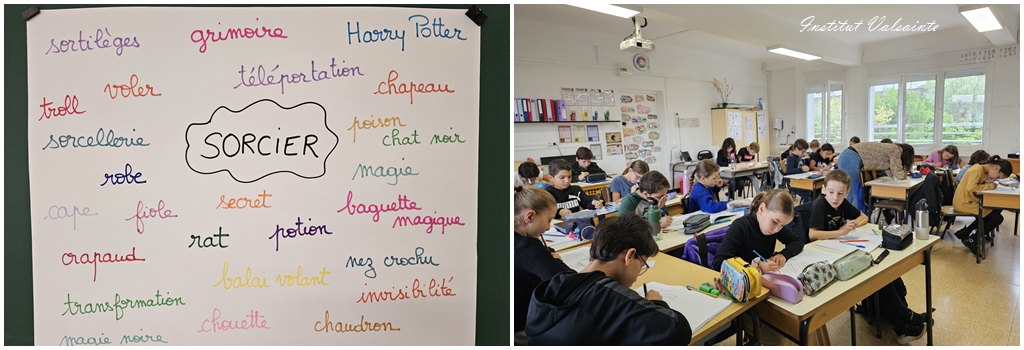 sortilèges grimoire Harry Potter
téléportation
troll voler chapeau
poison
sorcellerie SORCIER chat noir
magie
robe
cape fiole secret baguette magique
rat potion
crapaud nez crochu
balai volant
transformation invisibilité
chouette chaudron
magie noire
Institut Valsainte